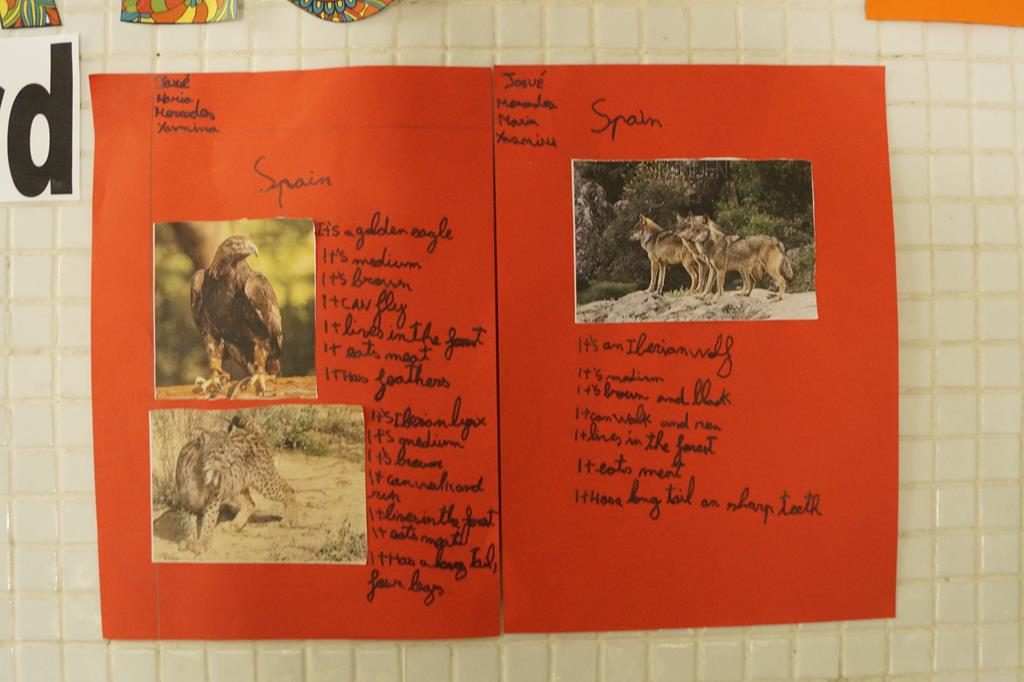 d
Josué
Maria
Mercedes
Yasmina
Spain
It's a golden eagle
It's medium
It's brown
It CAN fly
It lives in the forest
It eats meat
It Has feathers
It's Iberian lynx
It's medium
It's brown
It can walk and
run
It lives in the forest
It eats meat
It Has a long tail,
four legs.
Josué
Mercedes
Maria
Spain
It's an Iberian wolf
It's medium
It's brown and black
It can walk and run
It lives in the forest
It eats meat
It Has a long tail an sharp teeth